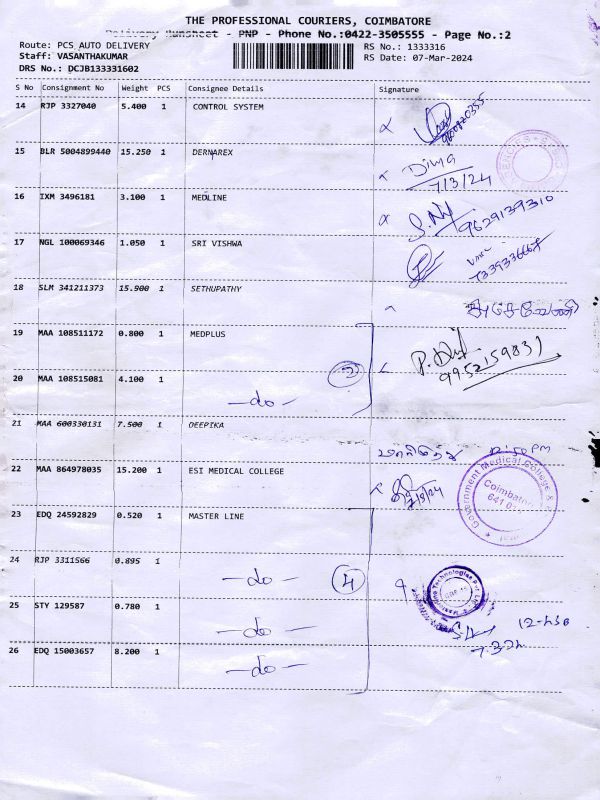 THE PROFESSIONAL COURIERS, COIMBATORE
Delivery Runsheet - PNP - Phone No.:0422-3505555 - Page No.:2
Route: PCS AUTO DELIVERY RS No.: 1333316
Staff: VASANTHAKUMAR RS Date: 07-Mar-2024
DRS No.: DCJB133331602
S No Consignment No Weight PCS Consignee Details Signature
14 RJP 3327040 5.400 1 CONTROL SYSTEM
15 BLR 5004899440 15.250 1 DERNAREX Dima
7/3/24
16 IXM 3496181 3.100 1 MEDLINE 9629139310
17 NGL 100069346 1.050 1 SRI VISHWA
18 SLM 341211373 15.900 1 SETHUPATHY
19 MAA 108511172 0.800 1 MEDPLUS
9952159831
20 MAA 108515081 4.100 1 -do- 2
21 MAA 600330131 7.500 1 DEEPIKA 12.50 PM
22 MAA 864978035 15.200 1 ESI MEDICAL COLLEGE
Government Medical College &
Coimbatore
23 EDQ 24592829 0.520 1 MASTER LINE
24 RJP 3311566 0.895 1 -do- 4
25 STY 129587 0.780 1 -do-
7.3.24
26 EDQ 15003657 8.200 1 -do-